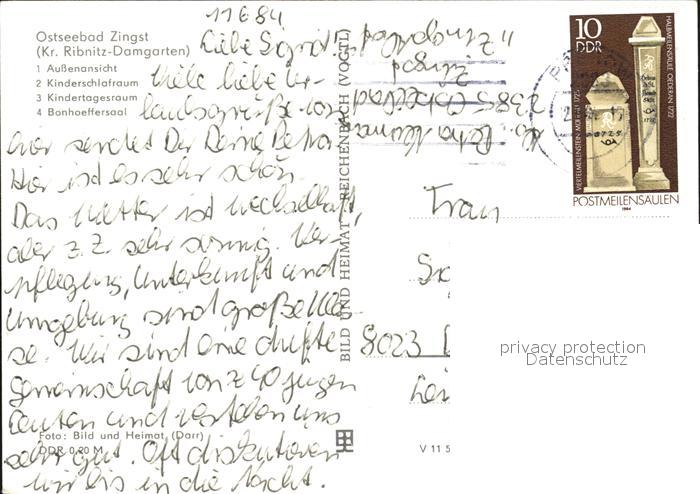 11.6.84
Ostseebad Zingst
(Kr. Ribnitz-Damgarten)
1 Außenansicht
2 Kinderschlafraum
3 Kindertagesraum
4 Bonhoeffersaal
Liebe Sigrid!
Viele liebe Ur-
laubsgrüße von
hier sendet Dir Deine Petra.
Hier ist es sehr schön.
Das Wetter ist wechselhaft,
aber z.Z. sehr sonnig. Ver-
pflegung, Unterkunft und
Umgebung sind große Kla-
se. Wir sind eine dufte
Gemeinschaft von 40 jungen
Leuten und verstehen uns
sehr gut. Oft diskutieren
wir bis in die Nacht.
Foto: Bild und Heimat (Darr)
DDR 0,20 M
BILD UND HEIMAT REICHENBACH (VOGTL)
V 11 5
Zingsthof"
Zingst
2385 Ostseebad
Petra
10
DDR
VIERTELMEILENSTEIN MÜHLAU 1725
HALBMEILENSÄULE OEDERAN 1722
POSTMEILENSÄULEN
1984
Frau
8023
privacy protection
Datenschutz